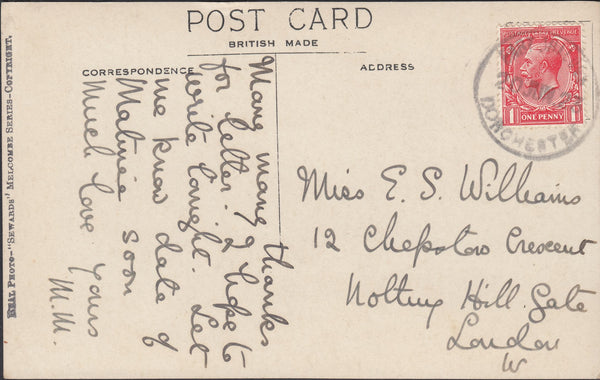 POST CARD
BRITISH MADE
CORRESPONDENCE
ADDRESS
REAL PHOTO—"SEWARDS" MELCOMBE SERIES—COPYRIGHT.
Many many thanks
for letter. I hope to
write tonight. Let
me know date of
Matinée soon
Much love yours
M.M.
POSTAGE REVENUE
1 ONE PENNY 1
DORCHESTER
Miss E. S. Williams
12 Chepstow Crescent
Notting Hill Gate
London
W